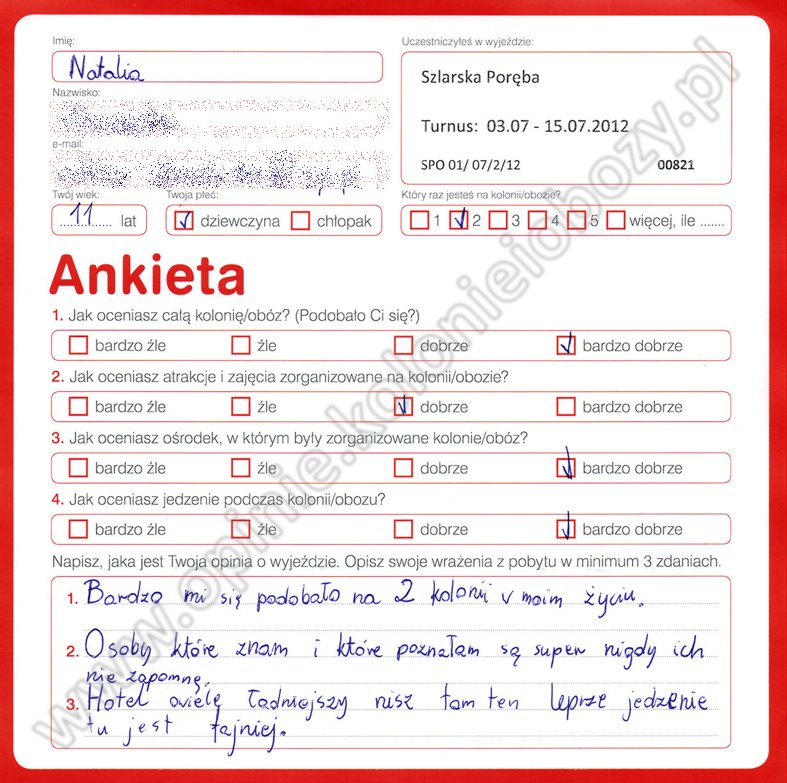 Imię:
Natalia
Uczestniczyłeś w wyjeździe:
Szlarska Poręba
Turnus: 03.07 - 15.07.2012
SPO 01/ 07/2/12 00821
Nazwisko:
e-mail:
Twój wiek:
11 lat
Twoja płeć:
dziewczyna chłopak
Który raz jesteś na kolonii/obozie?
1 2 3 4 5 więcej, ile .......
Ankieta
1. Jak oceniasz całą kolonię/obóz? (Podobało Ci się?)
bardzo źle źle dobrze bardzo dobrze
2. Jak oceniasz atrakcje i zajęcia zorganizowane na kolonii/obozie?
bardzo źle źle dobrze bardzo dobrze
3. Jak oceniasz ośrodek, w którym były zorganizowane kolonie/obóz?
bardzo źle źle dobrze bardzo dobrze
4. Jak oceniasz jedzenie podczas kolonii/obozu?
bardzo źle źle dobrze bardzo dobrze
Napisz, jaka jest Twoja opinia o wyjeździe. Opisz swoje wrażenia z pobytu w minimum 3 zdaniach.
1. Bardzo mi się podobało na 2 kolonii v moim życiu.
2. Osoby które znam i które poznałam są super nigdy ich
nie zapomnę.
3. Hotel owielę ładniejszy nisz tam ten leprze jedzenie
tu jest fajniej.
www.opinie.kolonieiobozy.pl